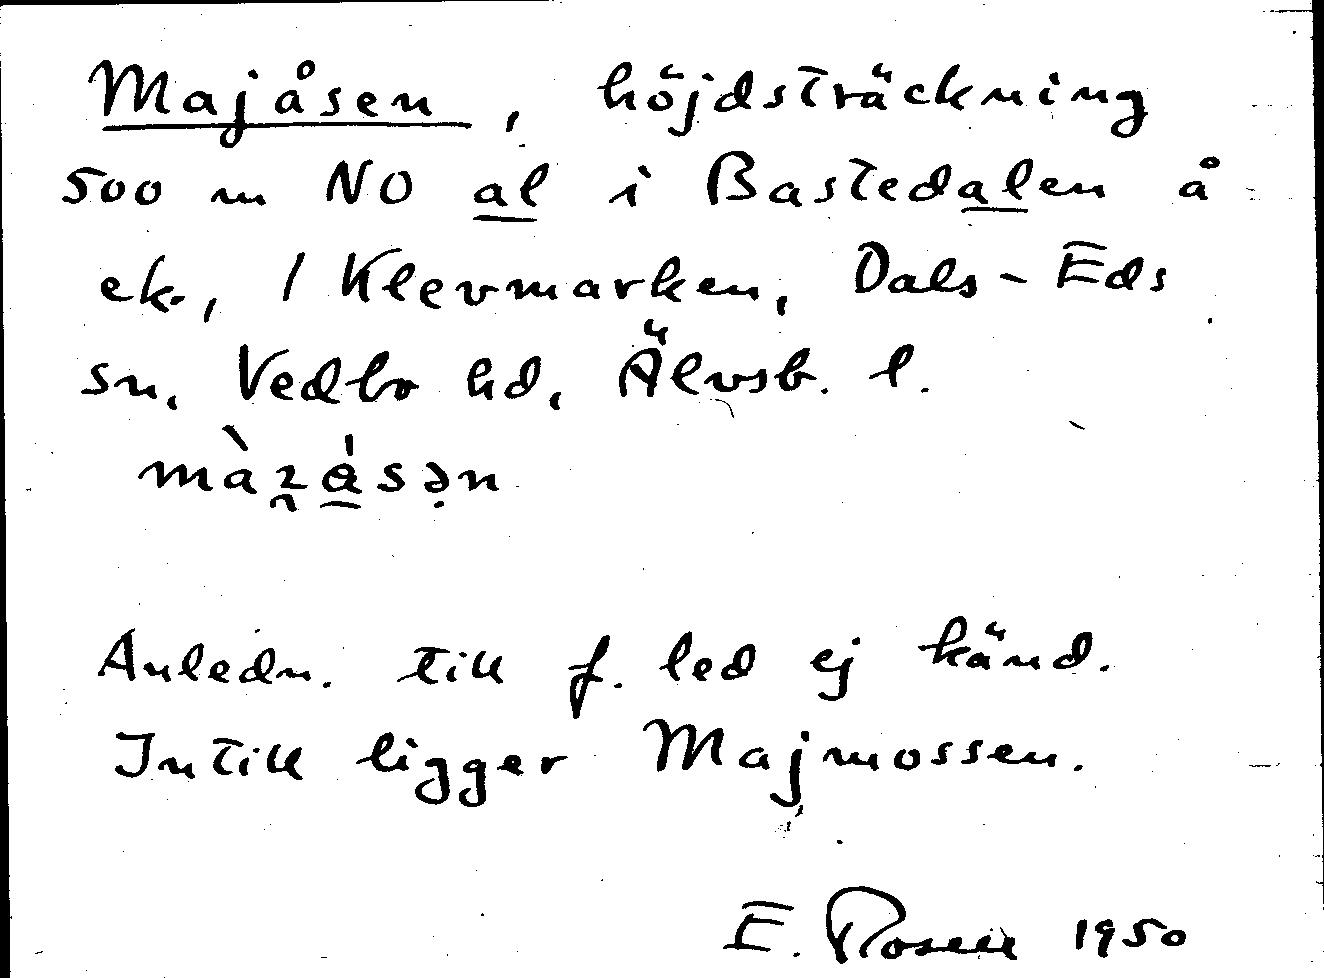 Majåsen, höjdsträckning
500 m NO al i Bastedalen å
ek., 1 Klevmarken, Dals-Eds
sn, Vedbo hd, Älvsb. l.
Anledn. till f. led ej känd.
Intill ligger Majmossen.
E. Rosell 1950